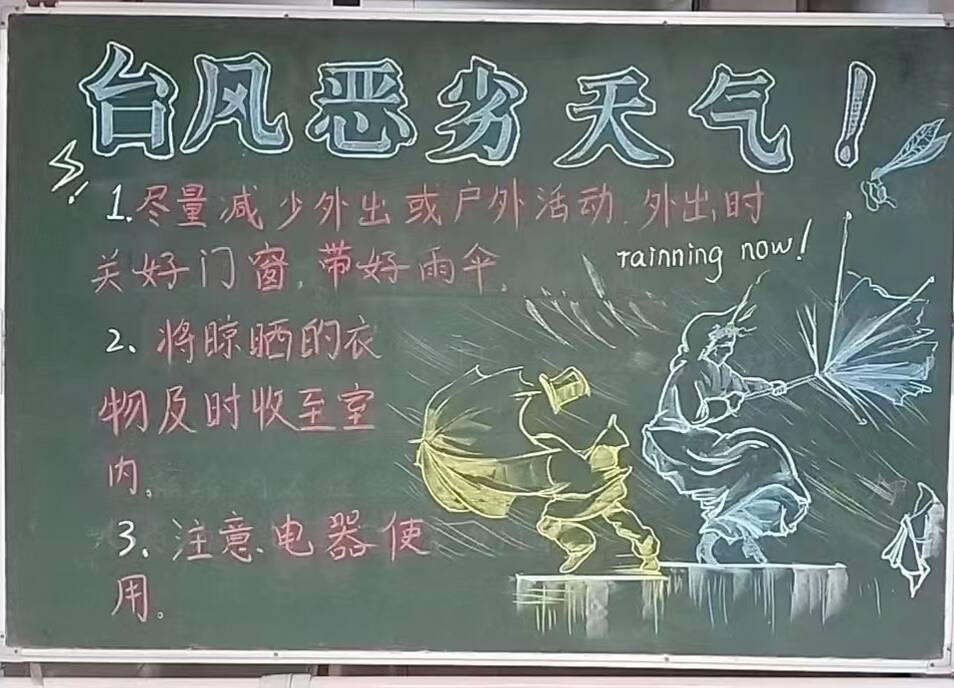 台风恶劣天气！
1.尽量减少外出或户外活动.外出时
关好门窗.带好雨伞.
rainning now!
2、将晾晒的衣
物及时收至室
内。
3、注意电器使
用。